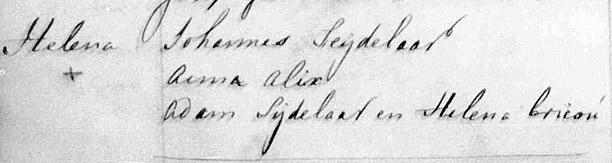 Helena Johannes Seijdelaar
+ Anna Alix
Adam Sijdelaar en Helena